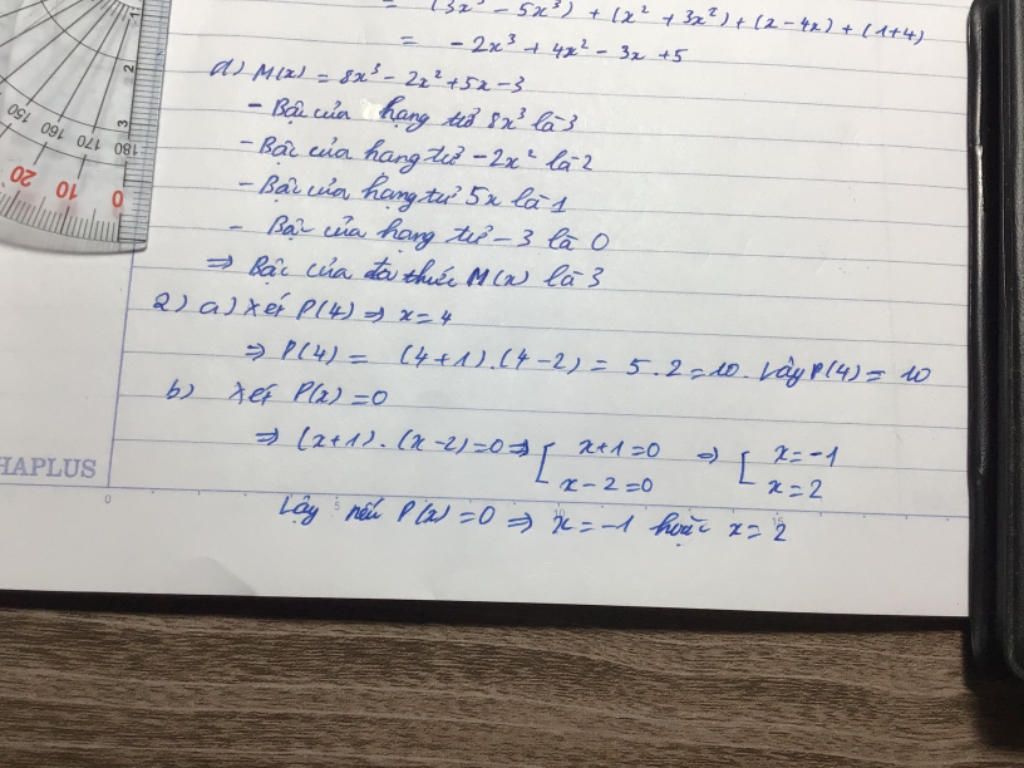 = (3x³ - 5x³) + (x² + 3x²) + (x - 4x) + (1+4)
= -2x³ + 4x² - 3x + 5
d) M(x) = 8x³ - 2x² + 5x - 3
- Bậc của hạng tử 8x³ là 3
- Bậc của hạng tử -2x² là 2
- Bậc của hạng tử 5x là 1
- Bậc của hạng tử -3 là 0
⇒ Bậc của đa thức M(x) là 3
2) a) Xét P(4) ⇒ x = 4
⇒ P(4) = (4+1).(4-2) = 5.2 = 10. Vậy P(4) = 10
b) Xét P(x) = 0
⇒ (x+1).(x-2) = 0 ⇒ [ x+1=0 ⇒ [ x=-1
x-2=0 x=2
Vậy nếu P(x) = 0 ⇒ x = -1 hoặc x = 2
HAPLUS
0 5 10 15
1 2 3
150 160 170 180
20 10 0